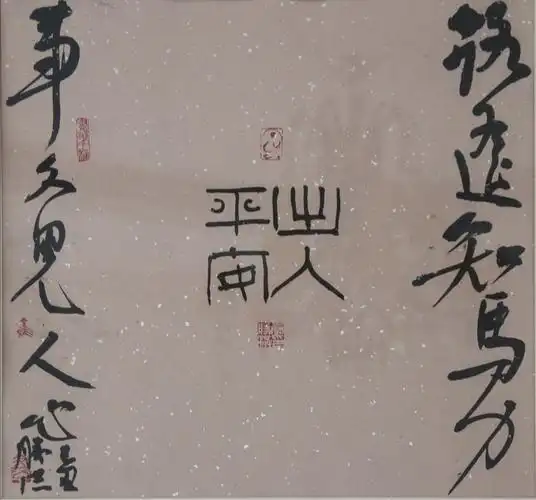 路遥知马力
出入
平安
事久見人心